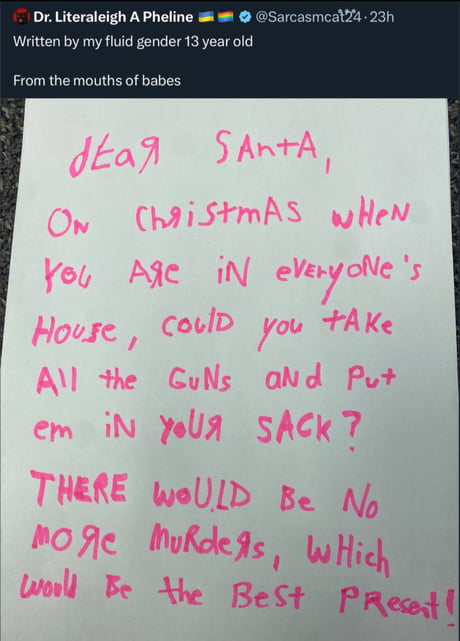 Dr. Literaleigh A Pheline 🇺🇦 🏳️‍🌈 @Sarcasmcat24 · 23h
Written by my fluid gender 13 year old
From the mouths of babes
dEaЯ SAntA,
ON ChЯistmAS wHeN
You AЯe iN eVEryoNe's
HouSe, CoulD you tAKe
All the GuNs aNd Put
em iN YoUЯ SACk?
THERE WoULD Be No
MoЯe MuRdeЯs, WHich
Would Be the BeSt PResent!